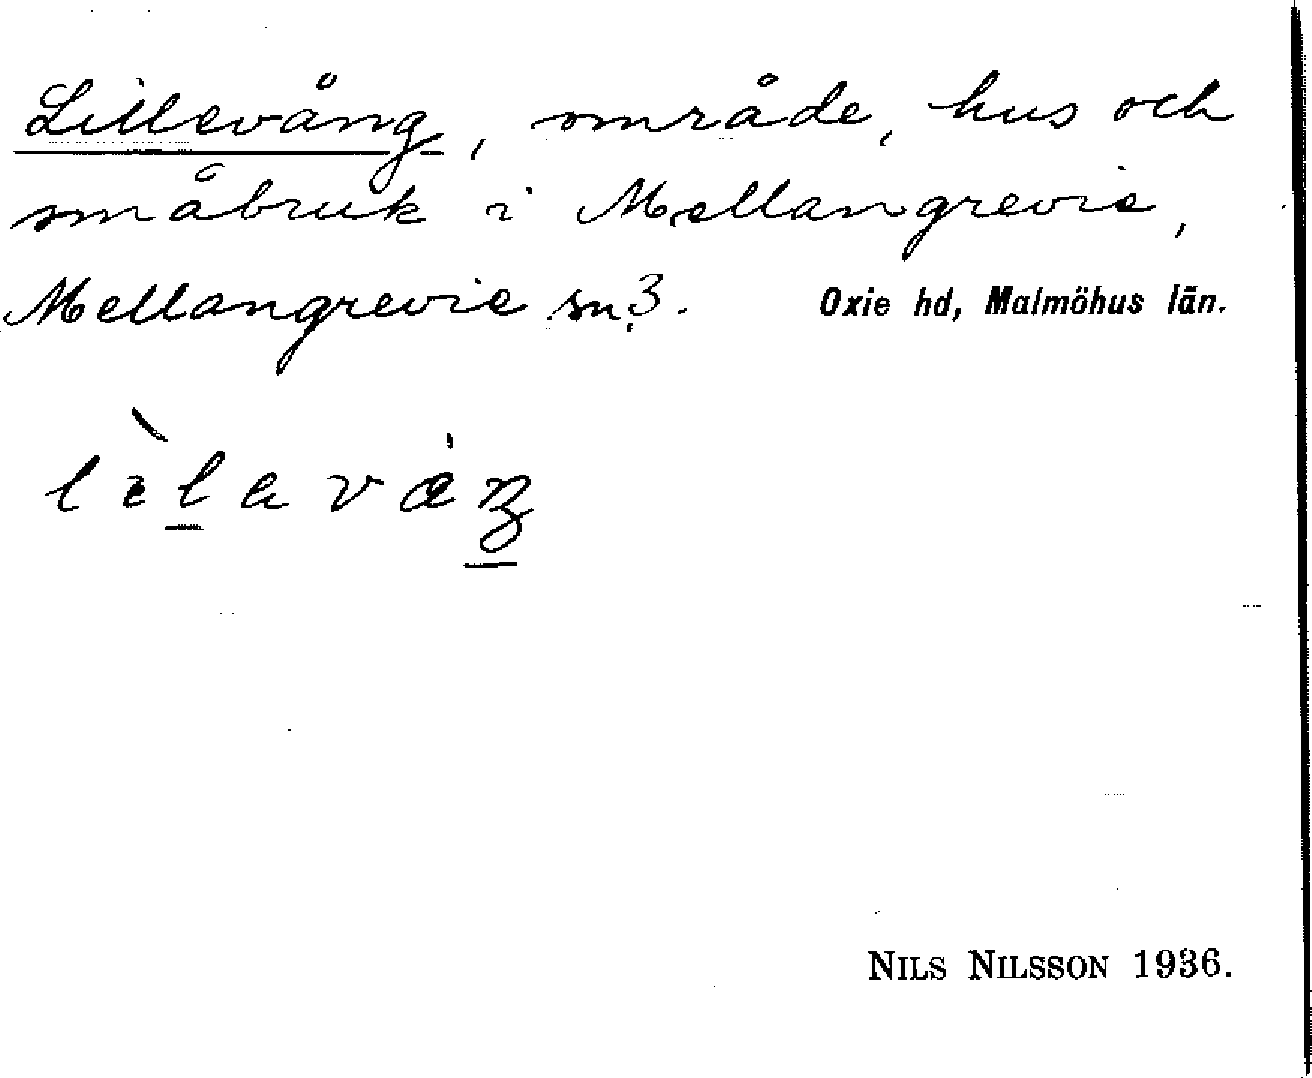 Lillevång, område, hus och
småbruk i Mellangrevie,
Mellangrevie sn3. Oxie hd, Malmöhus län.
NILS NILSSON 1936.